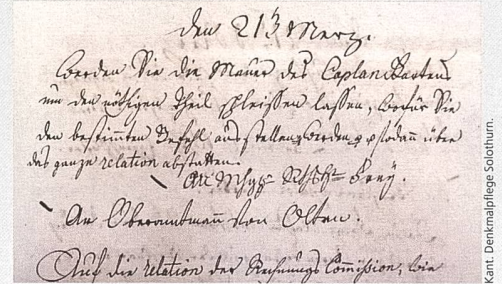 den 21t Merz.
Werden Sie die Mauer des Caplan Gartens
um den nöthigen Theil schleissen lassen, dafür Sie
den bestimten Befehl ausstellen werden, sodann über
das ganze relation abstatten.
An Frey.
An Oberamtmann von Olten.
Auf die relation der Rechnungs Comission, wie
Kant. Denkmalpflege Solothurn.